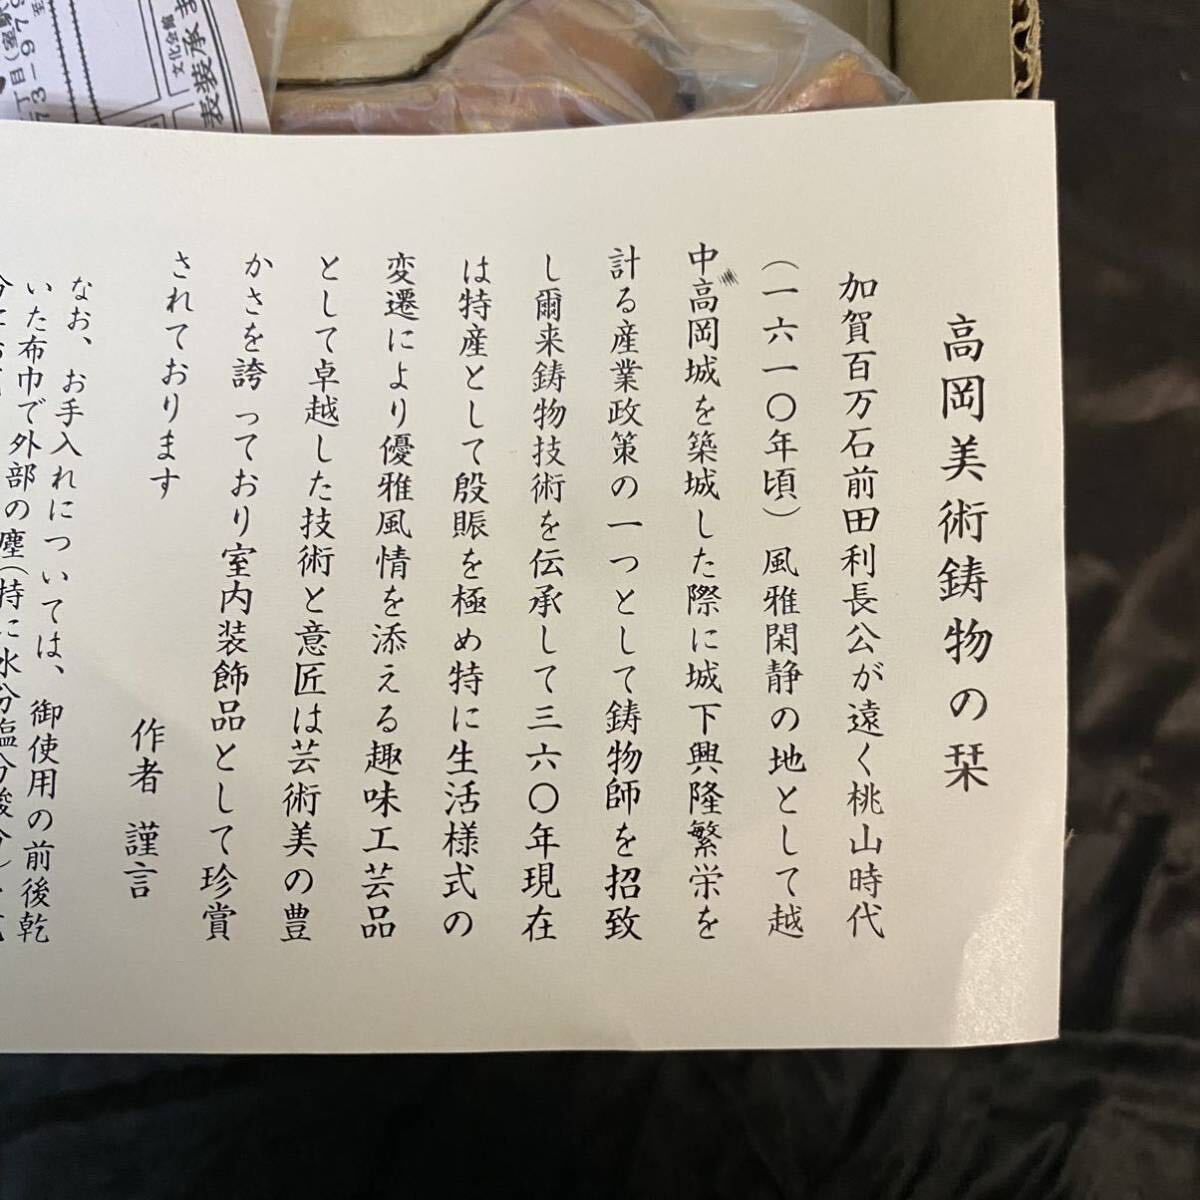 高岡美術鋳物の栞
加賀百万石前田利長公が遠く桃山時代
（一六一〇年頃）風雅閑静の地として越
中高岡城を築城した際に城下興隆繁栄を
計る産業政策の一つとして鋳物師を招致
し爾来鋳物技術を伝承して三六〇年現在
は特産として殷賑を極め特に生活様式の
変遷により優雅風情を添える趣味工芸品
として卓越した技術と意匠は芸術美の豊
かさを誇っており室内装飾品として珍賞
されております
作者 謹言
なお、お手入れについては、御使用の前後乾
いた布巾で外部の塵（特に水分塩分酸分
文化会館
表装承ま
丁目（室
73-979